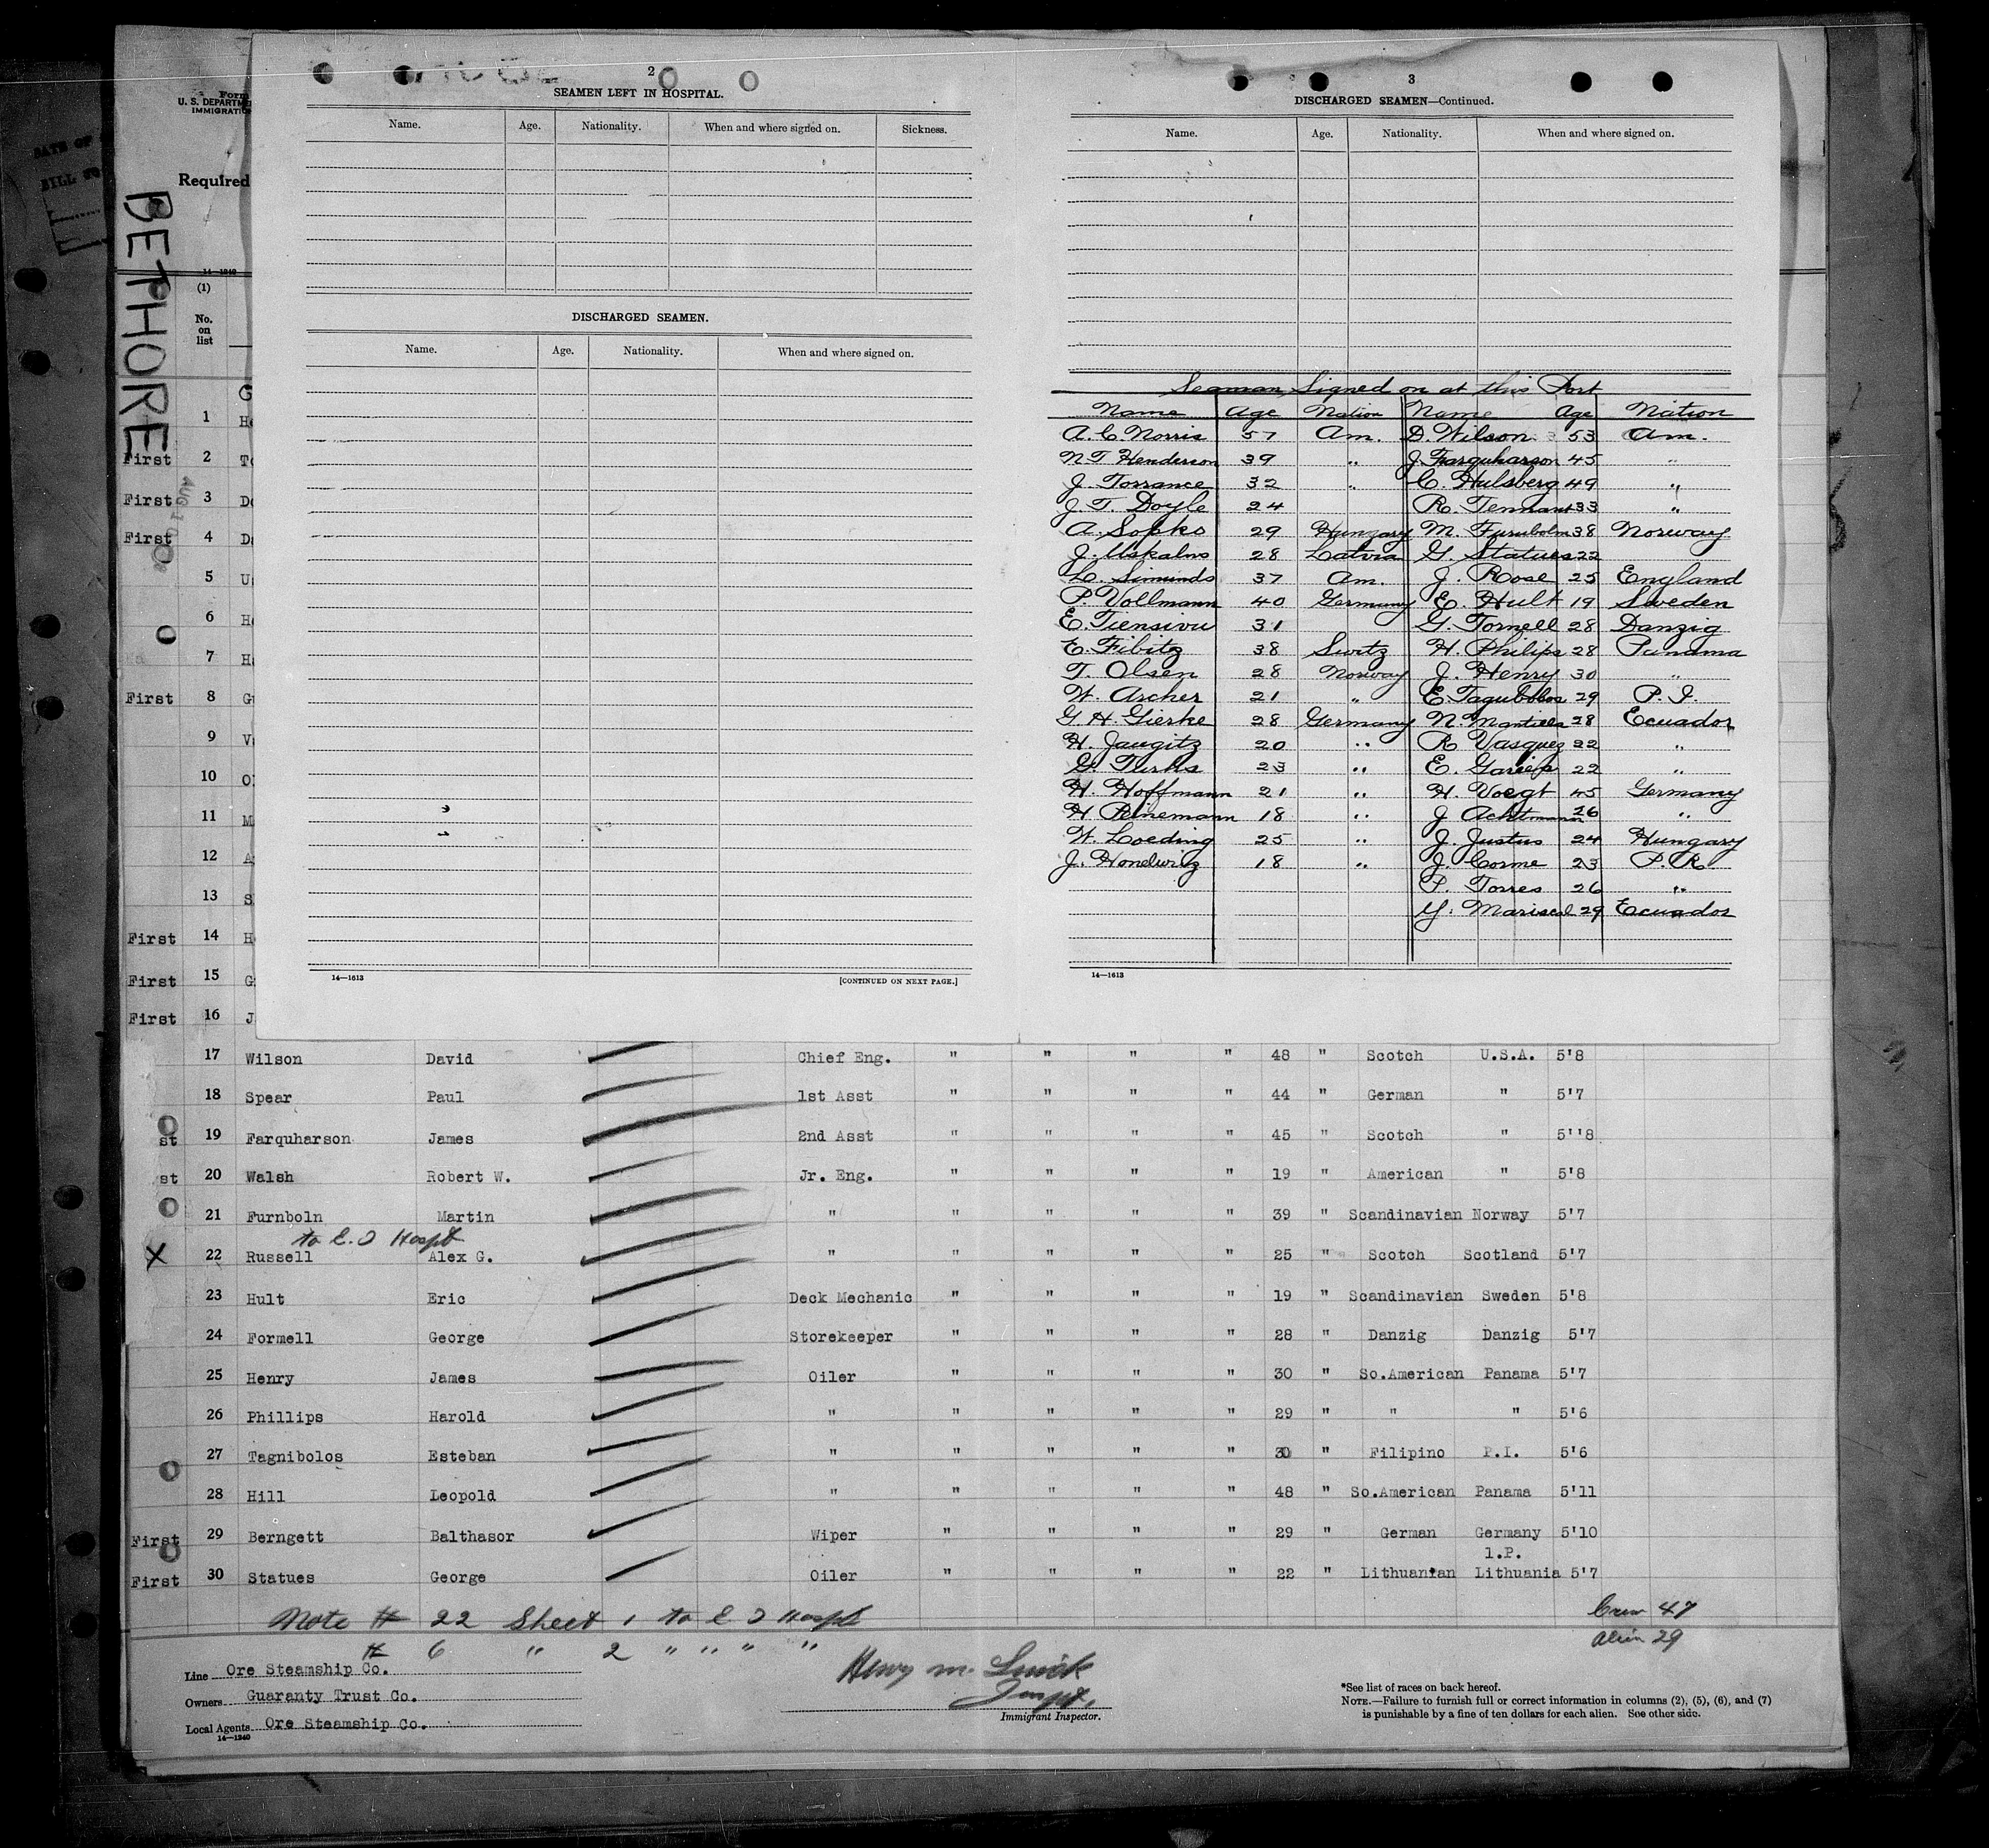 2
SEAMEN LEFT IN HOSPITAL.
Name. Age. Nationality. When and where signed on. Sickness.
DISCHARGED SEAMEN.
Name. Age. Nationality. When and where signed on.
14—1613 [CONTINUED ON NEXT PAGE.]
3
DISCHARGED SEAMEN—Continued.
Name. Age. Nationality. When and where signed on.
Seaman, Signed on at this Port
Name Age Nation Name Age Nation
A. C. Norris 57 Am. D. Wilson. 53 Am.
N. T Henderson 39 " J. Farquharson 45 "
J. Torrance 32 " C. Hulsberg 49 "
J. T. Doyle 24 R. Tennant 33 "
A. Sopko 29 Hungary M. Furubolm 38 Norway
J. Uskalns 28 Latvia G. Statues 22
L. Simunds 37 Am. J. Rose 25 England
P. Vollmann 40 Germany E. Hult 19 Sweden
E. Tiensivu 31 G. Tornell 28 Danzig
E. Fibitz 38 Switz H. Philips 28 Panama
T. Olsen 28 Norway J. Henry 30 "
W. Archer 21 " E. Tagubolos 29 P. I.
G. H. Gierke 28 Germany N. Mantilla 28 Ecuador
H. Jaugitz 20 " R Vasquez 22 "
G. 23 " E. Garcia 22 "
H. Hoffmann 21 " H. Voegt 45 Germany
H Peinemann 18 " J Achtmann 26 "
W. Loeding 25 " J. Justus 24 Hungary
J. 18 " J. Corme 23 P. R.
P. Torres 26 "
Y. Mariscal 29 Ecuador
14—1613
Form
U. S. DEPARTME
IMMIGRATIO
Required
BETHORE
14—1240
(1)
No.
on
list
G
1 He
First 2 To
First 3 Do
First 4 Da
5 U
6 He
7 Ha
First 8 Gu
9 Va
10 Ol
11 M
12 A
13 S
First 14 He
First 15 G
First 16 J
17 Wilson David Chief Eng. " " " " 48 " Scotch U.S.A. 5'8
18 Spear Paul 1st Asst " " " " 44 " German " 5'7
st 19 Farquharson James 2nd Asst " " " " 45 " Scotch " 5''8
st 20 Walsh Robert W. Jr. Eng. " " " " 19 " American " 5'8
21 Furnboln Martin " " " " " 39 " Scandinavian Norway 5'7
to E. I Hospt
X 22 Russell Alex G. " " " " " 25 " Scotch Scotland 5'7
23 Hult Eric Deck Mechanic " " " " 19 " Scandinavian Sweden 5'8
24 Formell George Storekeeper " " " " 28 " Danzig Danzig 5'7
25 Henry James Oiler " " " " 30 " So.American Panama 5'7
26 Phillips Harold " " " " " 29 " " " 5'6
27 Tagnibolos Esteban " " " " " 30 " Filipino P.I. 5'6
28 Hill Leopold " " " " " 48 " So.American Panama 5'11
First 29 Berngett Balthasor Wiper " " " " 29 " German Germany 5'10
l.P.
First 30 Statues George Oiler " " " " 22 " Lithuanian Lithuania 5'7
Note # 22 Sheet 1 to E I Hospt
# 6 " 2 " " " "
Crew 47
Alien 29
Line Ore Steamship Co.
Owners Guaranty Trust Co.
Local Agents Ore Steamship Co.
14—1240
Henry M.
Inspt.
Immigrant Inspector.
*See list of races on back hereof.
NOTE.—Failure to furnish full or correct information in columns (2), (5), (6), and (7)
is punishable by a fine of ten dollars for each alien. See other side.